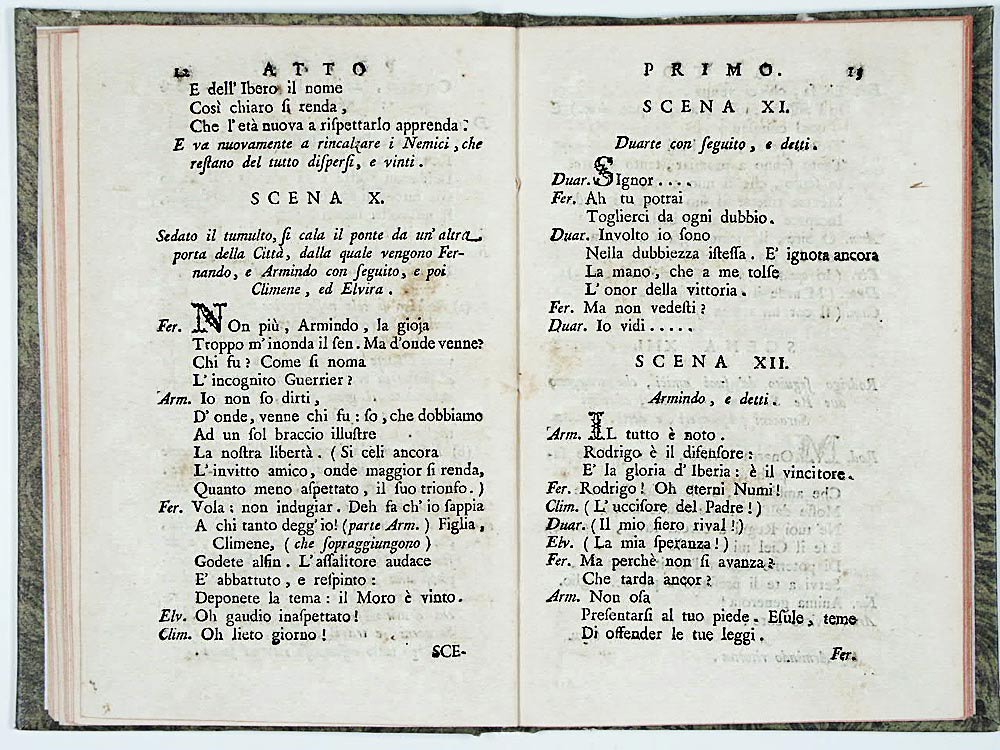 12 ATTO
E dell' Ibero il nome
Così chiaro ſi renda,
Che l'età nuova a riſpettarlo apprenda.
E va nuovamente a rincalzare i Nemici, che
reſtano del tutto diſperſi, e vinti.
SCENA X.
Sedato il tumulto, ſi cala il ponte da un' altra
porta della Città, dalla quale vengono Fer-
nando, e Armindo con ſeguito, e poi
Climene, ed Elvira.
Fer. NOn più, Armindo, la gioja
Troppo m'inonda il ſen. Ma d'onde venne?
Chi fu? Come ſi noma
L'incognito Guerrier?
Arm. Io non ſo dirti,
D' onde, venne chi fu: ſo, che dobbiamo
Ad un ſol braccio illuſtre
La noſtra libertà. (Si celi ancora
L'invitto amico, onde maggior ſi renda,
Quanto meno aſpettato, il ſuo trionfo.)
Fer. Vola: non indugiar. Deh fa ch' io ſappia
A chi tanto degg' io! (parte Arm.) Figlia,
Climene, (che ſopraggiungono)
Godete alfin. L'aſſalitore audace
E' abbattuto, e reſpinto:
Deponete la tema: il Moro è vinto.
Elv. Oh gaudio inaſpettato!
Clim. Oh lieto giorno!
SCE-
PRIMO. 13
SCENA XI.
Duarte con ſeguito, e detti.
Duar. SIgnor....
Fer. Ah tu potrai
Toglierci da ogni dubbio.
Duar. Involto io ſono
Nella dubbiezza iſteſſa. E' ignota ancora
La mano, che a me tolſe
L' onor della vittoria.
Fer. Ma non vedeſti?
Duar. Io vidi.....
SCENA XII.
Armindo, e detti.
Arm. IL tutto è noto.
Rodrigo è il difenſore:
E' la gloria d' Iberia: è il vincitore.
Fer. Rodrigo! Oh eterni Numi!
Clim. (L' ucciſore del Padre!)
Duar. (Il mio fiero rival!)
Elv. (La mia ſperanza!)
Fer. Ma perchè non ſi avanza?
Che tarda ancor?
Arm. Non oſa
Preſentarſi al tuo piede. Eſule, teme
Di offender le tue leggi.
Fer.